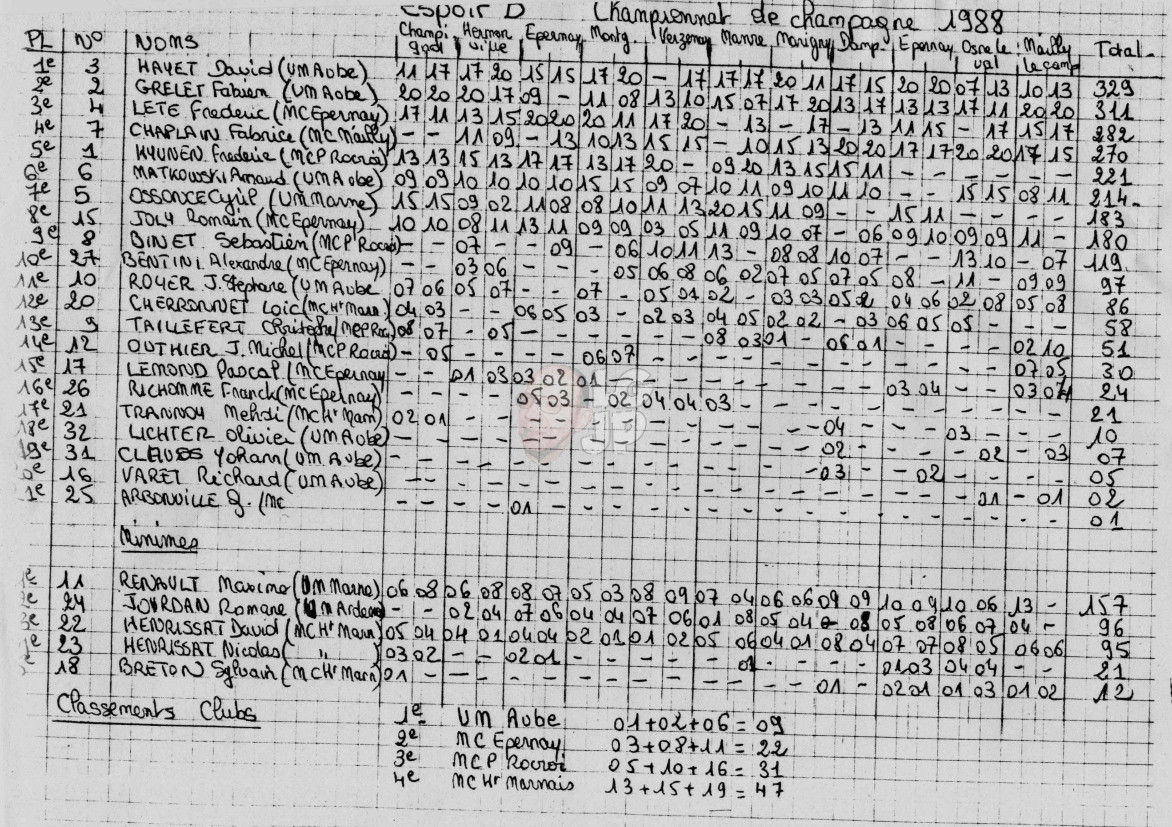 Espoir D Championnat de champagne 1988
PL No NOMS Champigool Hermonville Epernay Montg. Verzenay Manre Marigny Damp. Epernay Osne le val Mailly le camp Total
1e 3 HAYET David (UM Aube) 11 17 17 20 15 15 17 20 - 17 17 17 20 11 17 15 20 20 07 13 10 13 329
2e 2 GRELET Fabien (UM Aube) 20 20 20 17 09 - 11 08 13 10 15 07 17 20 13 17 13 13 17 11 20 20 311
3e 4 LETE Frederic (MC Epernay) 17 11 13 15 20 20 20 11 17 20 - 13 - 17 - 13 11 15 - 17 15 17 282
4e 7 CHAPLAIN Fabrice (MC Mailly) - - 11 09 - 13 10 13 15 15 - 10 15 13 20 20 17 17 20 20 17 15 270
5e 1 Frederic (MCP Rocroi) 13 13 15 13 17 17 13 17 20 - 09 20 13 15 15 11 - - - - - - 221
6e 6 MATKOWSKI Arnaud (UM Aube) 09 09 10 10 10 10 15 15 09 07 10 11 09 10 11 10 - - 15 15 08 11 214
7e 5 OSSONCE Cyril (UM Marne) 15 15 09 02 11 08 08 10 11 13 20 15 11 09 - - 15 11 - - - - 183
8e 15 JOLY Romain (MC Epernay) 10 10 08 11 13 11 09 09 03 05 11 09 10 07 - 06 09 10 09 09 11 - 180
9e 8 DINET Sebastien (MCP Rocroi) - - 07 - - 09 - 06 10 11 13 - 08 08 10 07 - - 13 10 - 07 119
10e 27 BENTINI Alexandre (MC Epernay) - - 03 06 - - - 05 06 08 06 02 07 05 07 05 08 - 11 - 09 09 97
11e 10 ROYER J. Stephane (UM Aube 07 06 05 07 - - 07 - 05 01 02 - 03 03 05 02 04 06 02 08 05 08 86
12e 20 CHERRONNET Loic (MC Ht Marn.) 04 03 - - 06 05 03 - 02 03 04 05 02 02 - 03 06 05 05 - - - 58
13e 9 TAILLEFERT Christophe (MCP Roc) 08 07 - 05 - - - - - - 08 03 01 - 06 01 - - - - 02 10 51
14e 12 OUTHIER J. Michel (MCP Rocroi) - 05 - - - - 06 07 - - - - - - - - - - - - 07 05 30
15e 17 LEMOND Pascal (MC Epernay - - 01 03 03 02 01 - - - - - - - - - 03 04 - - 03 04 24
16e 26 RICHOMME Franck (MC Epernay) - - - - 05 03 - 02 04 04 03 - - - - - - - - - - - 21
17e 21 TRANNOY Mehdi (MC Ht Marn) 02 01 - - - - - - - - - - - - 04 - - - 03 - - - 10
18e 32 LICHTER Olivier (UM Aube) - - - - - - - - - - - - - - 02 - - - - 02 - 03 07
19e 31 CLAUSS Yohann (UM Aube) - - - - - - - - - - - - - - 03 - - 02 - - - - 05
0e 16 VARET Richard (UM Aube) - - - - - - - - - - - - - - - - - - - 01 - 01 02
1e 25 ARBONVILLE G. (MC - - - - 01 - - - - - - - - - - - - - - - - - 01
Minimes
1e 11 RENAULT Maxime (UM Marne) 06 08 06 08 08 07 05 03 08 09 07 04 06 06 09 09 10 09 10 06 13 - 157
2e 24 JOURDAN Romane (UM Ardenn - - 02 04 07 06 04 04 07 06 01 08 05 04 - 08 05 08 06 07 04 - 96
3e 22 HENRISSAT David (MC Ht Marn) 05 04 04 01 04 04 02 01 01 02 05 06 04 01 08 04 07 07 08 05 06 06 95
23 HENRISSAT Nicolas ( " ) 03 02 - - 02 01 - - - - - 01 - - - - 01 03 04 04 - - 21
18 BRETON Sylvain (MC Ht Marn) 01 - - - - - - - - - - - - - 01 - 02 01 01 03 01 02 12
Classements Clubs
1e UM Aube 01+02+06 = 09
2e MC Epernay 03+08+11 = 22
3e MCP Rocroi 05+10+16 = 31
4e MC Ht Marnais 13+15+19 = 47